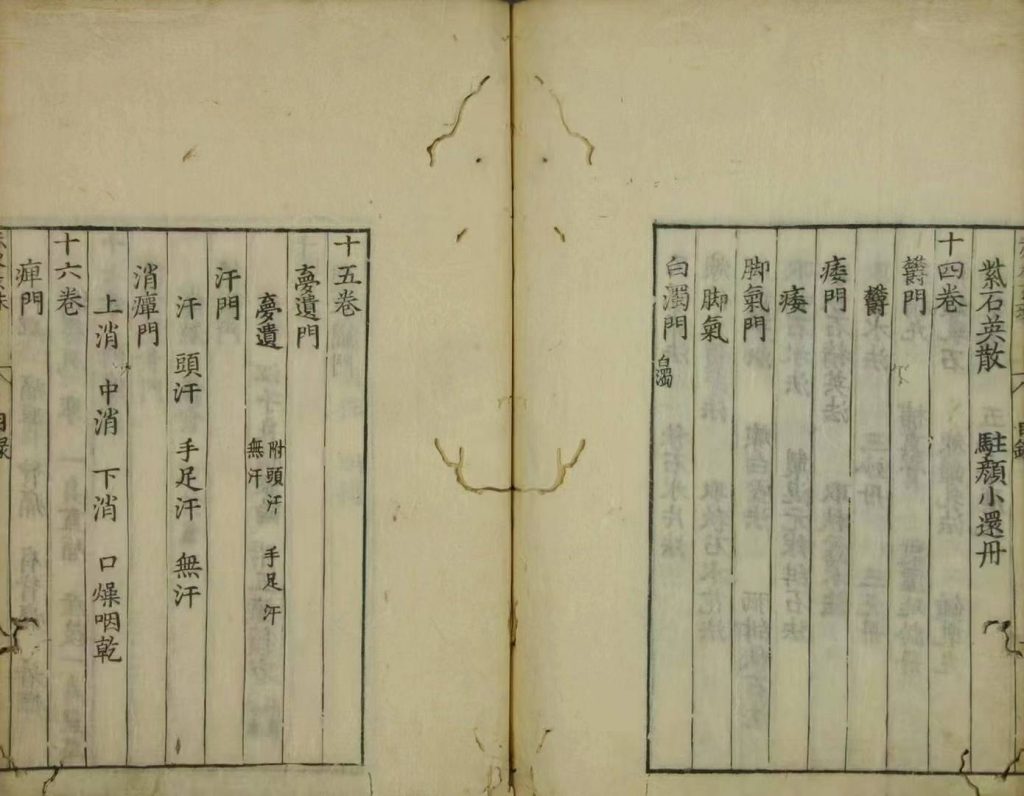 紫石英散 五駐顏小還丹
十四卷
欝門
欝
痿門
痿
脚氣門
脚氣
白濁門 白濁
十五卷
夢遺門
夢遺 附頭汗 手足汗 無汗
汗門
汗 頭汗 手足汗 無汗
消癉門
上消 中消 下消 口燥咽乾
十六卷
痺門
目錄